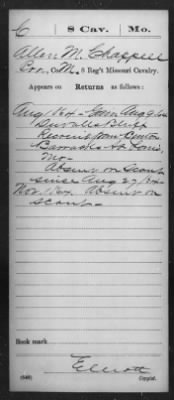 C 8 Cav. Mo.
Allen M. Chappell
Cor., Co. M, 8 Reg't Missouri Cavalry.
Appears on Returns as follows:
Aug 1864 Gain Aug 9, 64
Duvalls Bluff
Recruit from Benton
Barracks St. Louis,
Mo.
Absent on Scout
since Aug 27, 1864
Nov 1864 Absent on
scout
Book mark
Elliott
(546) Copyist.